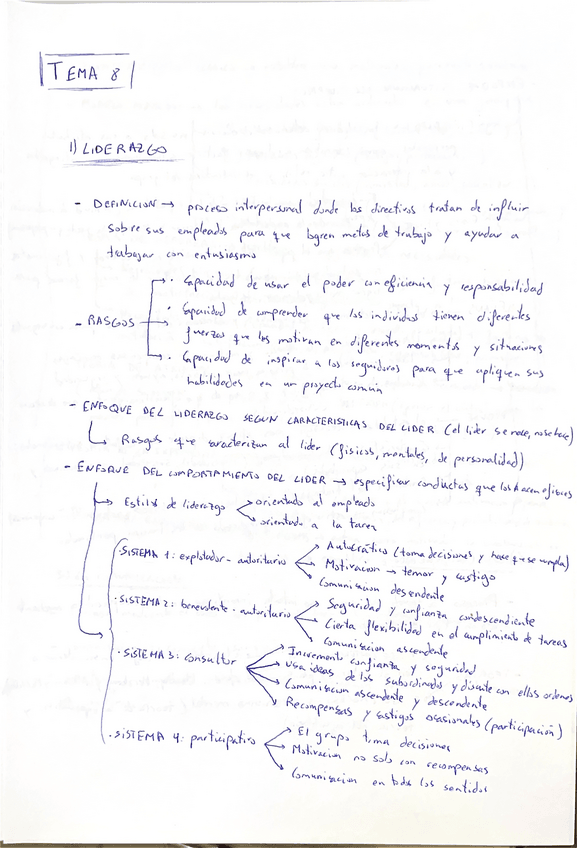 TEMA 8
1) LIDERAZGO
- DEFINICION → proceso interpersonal donde los directivos tratan de influir
sobre sus empleados para que logren metas de trabajo y ayudar a
trabajar con entusiasmo
- RASGOS
· Capacidad de usar el poder con eficiencia y responsabilidad
· Capacidad de comprender que los individuos tienen diferentes
fuerzas que los motivan en diferentes momentos y situaciones
· Capacidad de inspirar a los seguidores para que apliquen sus
habilidades en un proyecto común
- ENFOQUE DEL LIDERAZGO SEGUN CARACTERISTICAS DEL LIDER (el lider se nace, no se hace)
Rasgos que caracterizan al lider (físicos, mentales, de personalidad)
- ENFOQUE DEL COMPORTAMIENTO DEL LIDER → especificar conductas que los hacen eficaces
→ Estilos de liderazgo
orientado al empleado
orientado a la tarea
· SISTEMA 1: explotador - autoritario
Autocrático (toma decisiones y hace que se cumpla)
Motivacion → temor y castigo
Comunicacion descendente
· SISTEMA 2: benevolente - autoritario
Seguridad y confianza condescendiente
Cierta flexibilidad en el cumplimiento de tareas
Comunicacion ascendente
· SISTEMA 3: consultor
Incremento confianza y seguridad
Usa ideas de los subordinados y discute con ellos ordenes
Comunicacion ascendente y descendente
Recompensas y castigos ocasionales (participación)
· SISTEMA 4: participativo
El grupo toma decisiones
Motivacion no solo con recompensas
Comunicacion en todos los sentidos